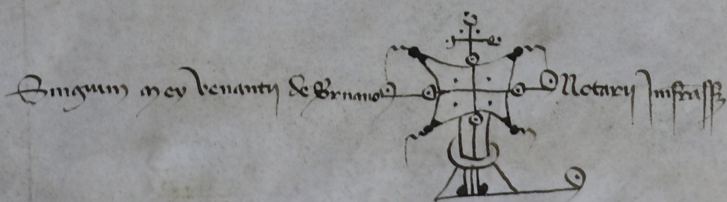 Singnum mey venantij de Ernano Notarij Infrass